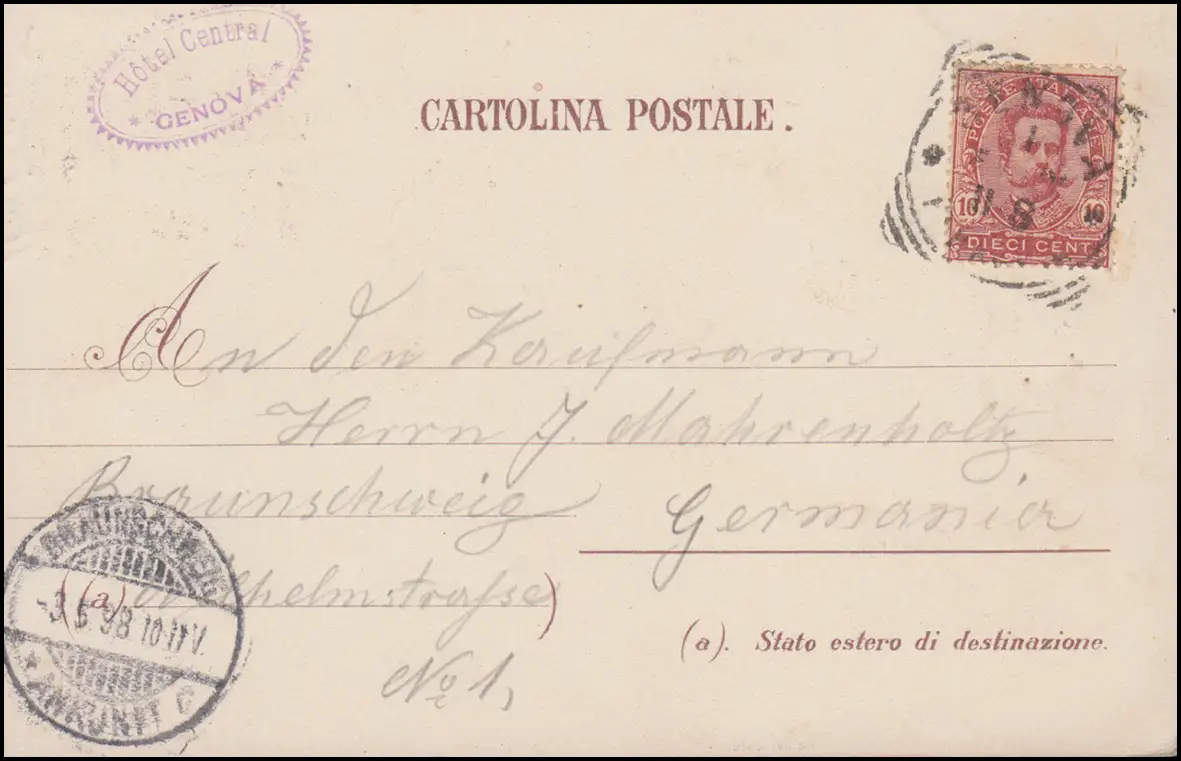 Hôtel Central
* GENOVA *
CARTOLINA POSTALE.
POSTE ITALIANE
10 10
DIECI CENT
An den Kaufmann
Herrn J. Mahrenholtz
Braunschweig Germania
(a) Wilhelmstrasse
No 1,
(a). Stato estero di destinazione.
BRAUNSCHWEIG
-3 5 98 10-11V.
* ANKUNFT C